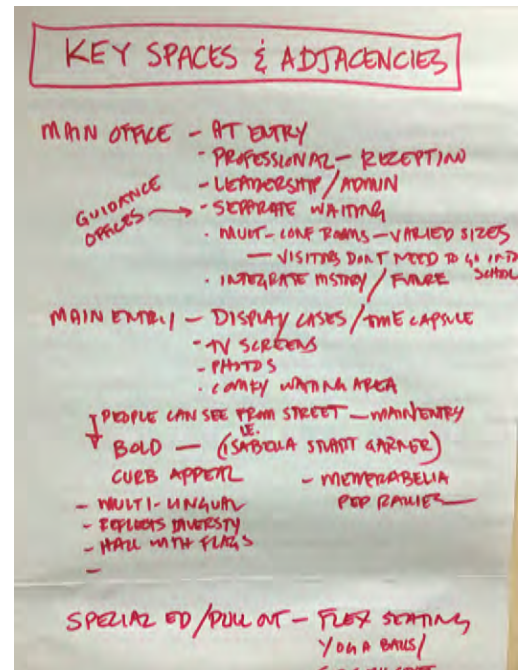 KEY SPACES & ADJACENCIES
MAIN OFFICE - AT ENTRY
- PROFESSIONAL - RECEPTION
- LEADERSHIP/ADMIN
GUIDANCE OFFICES → - SEPARATE WAITING
· MULT-CONF ROOMS - VARIED SIZES
— VISITORS DON'T NEED TO GO INTO SCHOOL
· INTEGRATE HISTORY/FUTURE
MAIN ENTRY - DISPLAY CASES/TIME CAPSULE
- TV SCREENS
- PHOTOS
· COMFY WAITING AREA
PEOPLE CAN SEE FROM STREET — MAIN ENTRY
BOLD — (I.E. ISABELLA STUART GARNER)
CURB APPEAL - MEMERABELIA
- MULTI-LINGUAL PEP RALLIES
- REFLECTS DIVERSTY
- HALL WITH FLAGS
-
SPECIAL ED/PULL OUT - FLEX SEATING
YOGA BALLS/